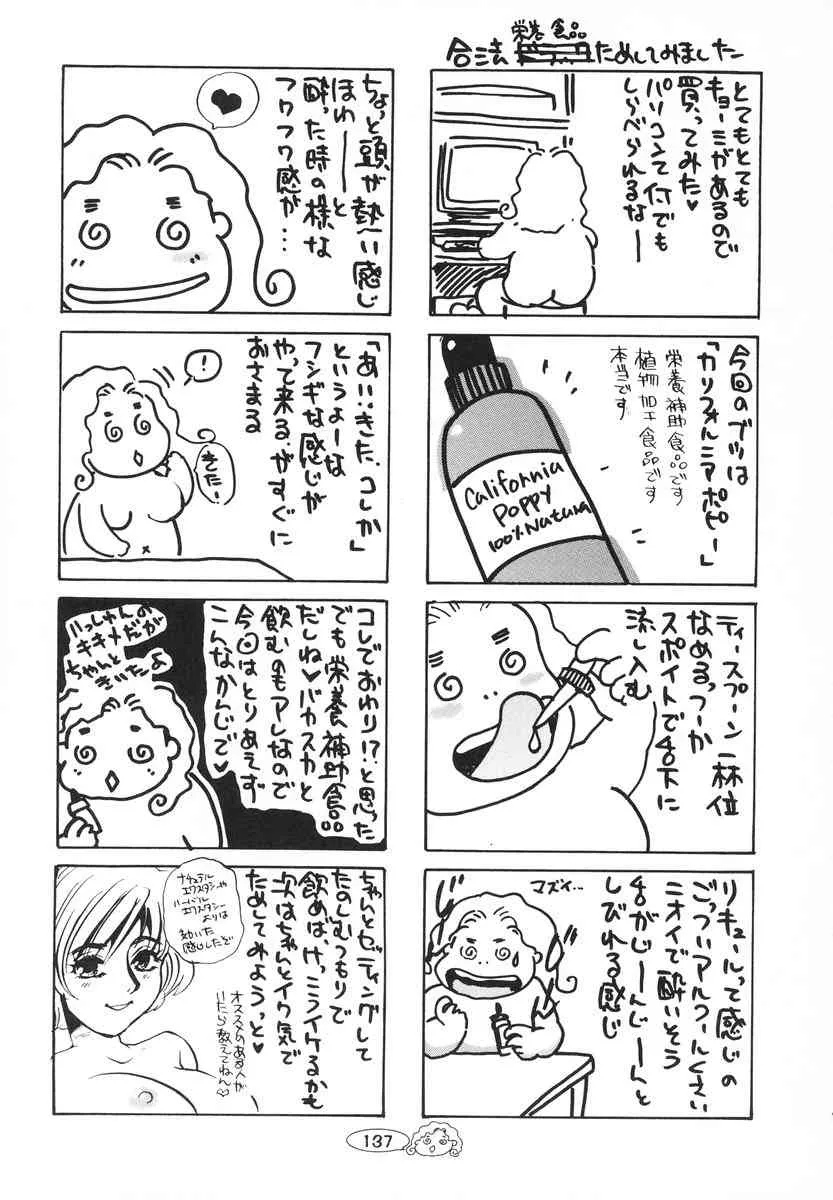 栄養食品
合法ためしてみました
とてもとても
キョーミがあるので
買ってみた♥
パソコンて何でも
しらべられるなー
今回のブツは
「カリフォルニアポピー」
栄養補助食品です
植物加工食品です
本当です
California
POPPY
100% Natural
ティースプーン一杯位
なめる。つーか
スポイトで舌下に
流し込む
リキュールって感じの
ごっついアルコールくさい
ニオイで酔いそう
舌がじーんじーんと
しびれる感じ
マズイ…
ちょっと頭が熱〜い感じ
ほわーーと
酔った時の様な
フワフワ感が…
♥
「あ!!きた、コレか」
というよーな
フシギな感じが
やって来る、がすぐに
おさまる
!
きたー
コレでおわり!?と思った
でも栄養補助食品
だしね♥バカスカと
飲むのもアレなので
今回はとりあえず
こんなかんじで♥
いっしゅんの
キキメだが
ちゃんと
きいたよ
ちゃんとセッティングして
たのしむつもりで
飲めば、けっこうイケるかも
次はちゃんとイク気で
ためしてみようっと♥
ナチュラル
エクスタシーや
ハーバル
エクスタシー
よりは
効いた
感じしたぞ
オススメのある人が
いたら教えてねん♡
137